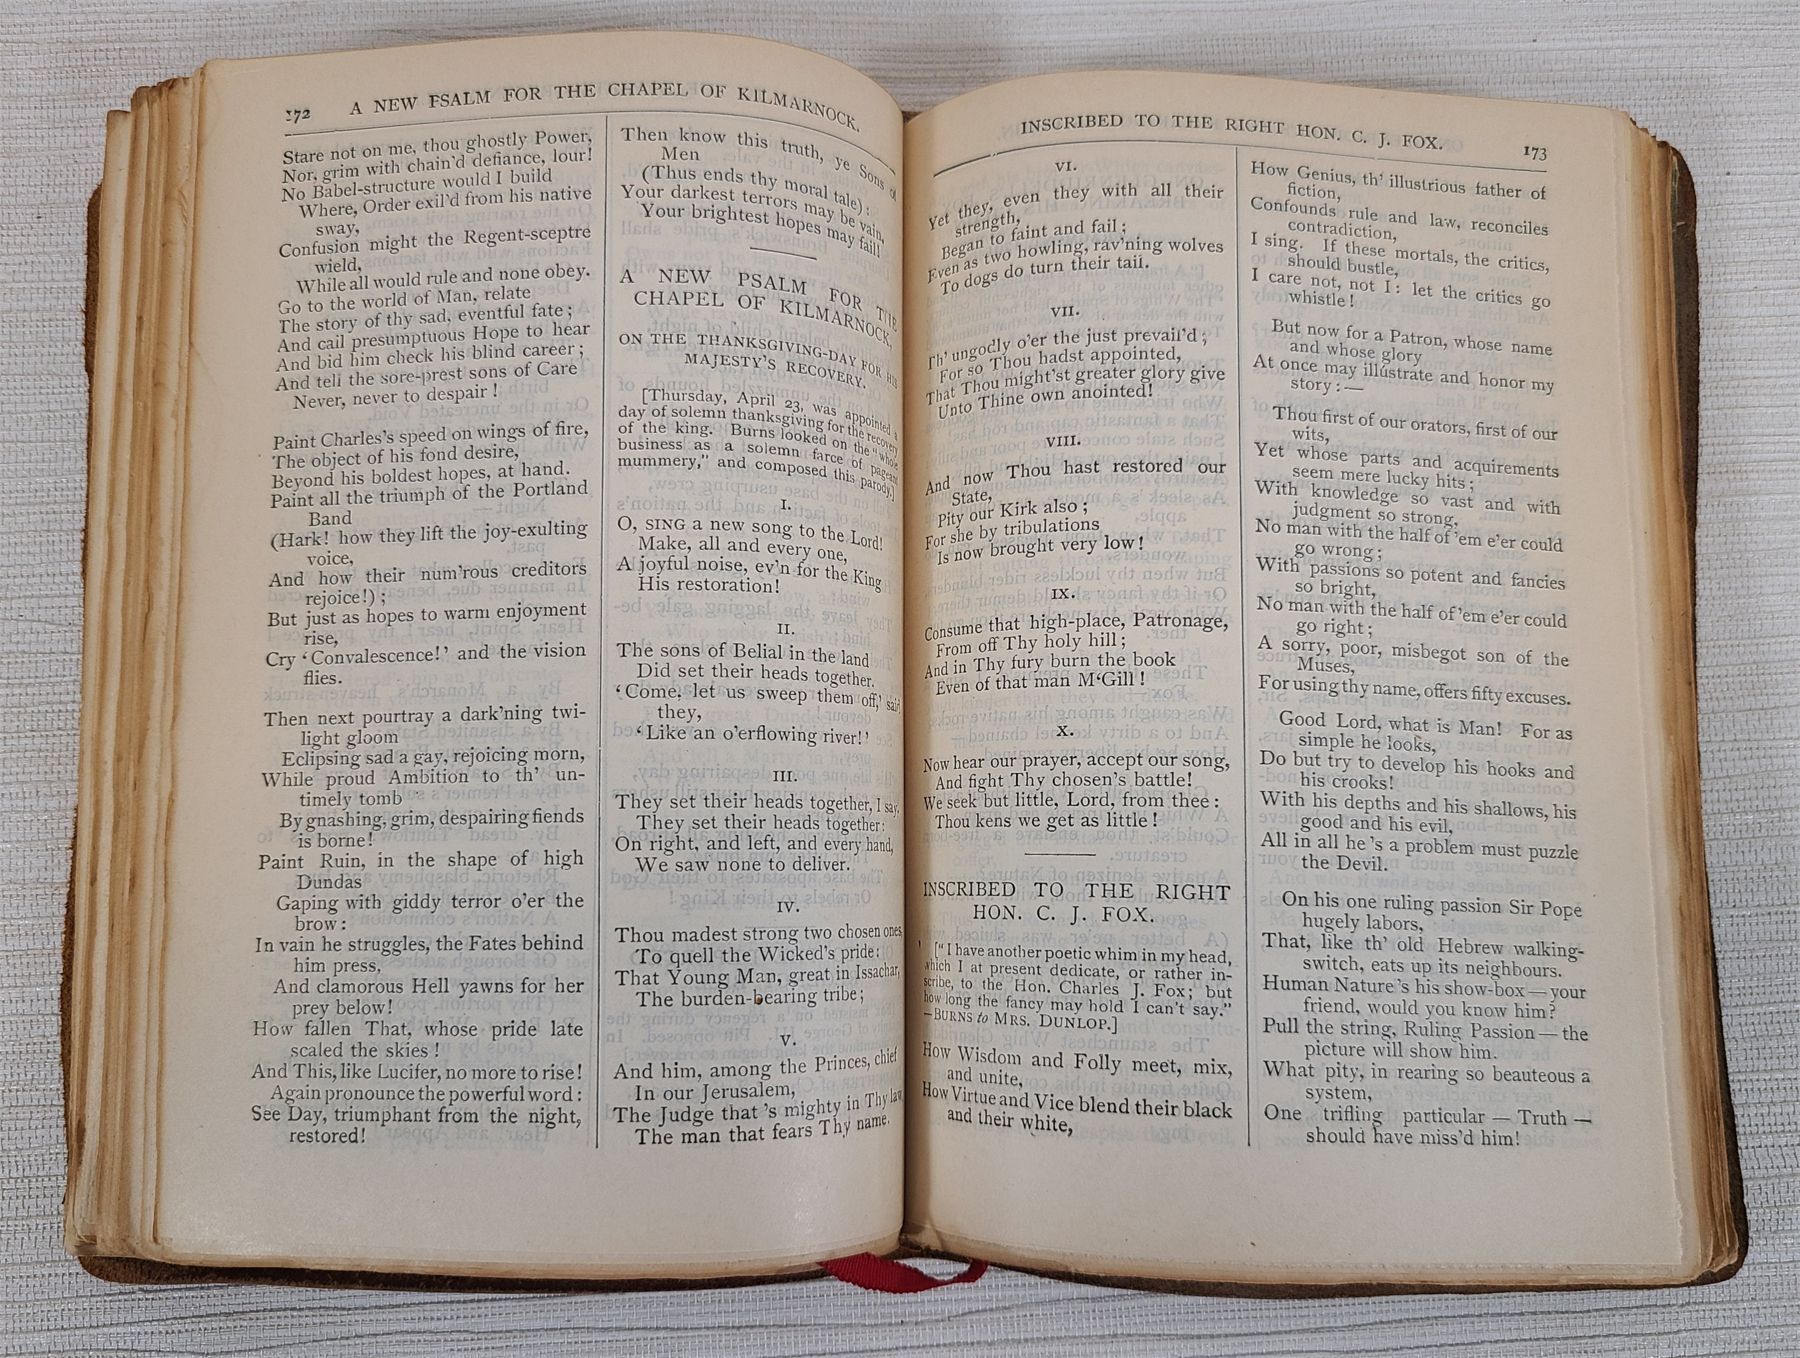 172 A NEW PSALM FOR THE CHAPEL OF KILMARNOCK.
Stare not on me, thou ghostly Power,
Nor, grim with chain'd defiance, lour!
No Babel-structure would I build
Where, Order exil'd from his native
sway,
Confusion might the Regent-sceptre
wield,
While all would rule and none obey.
Go to the world of Man, relate
The story of thy sad, eventful fate;
And call presumptuous Hope to hear
And bid him check his blind career;
And tell the sore-prest sons of Care
Never, never to despair!
Paint Charles's speed on wings of fire,
The object of his fond desire,
Beyond his boldest hopes, at hand.
Paint all the triumph of the Portland
Band
(Hark! how they lift the joy-exulting
voice,
And how their num'rous creditors
rejoice!);
But just as hopes to warm enjoyment
rise,
Cry 'Convalescence!' and the vision
flies.
Then next pourtray a dark'ning twi-
light gloom
Eclipsing sad a gay, rejoicing morn,
While proud Ambition to th' un-
timely tomb
By gnashing, grim, despairing fiends
is borne!
Paint Ruin, in the shape of high
Dundas
Gaping with giddy terror o'er the
brow:
In vain he struggles, the Fates behind
him press,
And clamorous Hell yawns for her
prey below!
How fallen That, whose pride late
scaled the skies!
And This, like Lucifer, no more to rise!
Again pronounce the powerful word:
See Day, triumphant from the night,
restored!
Then know this truth, ye Sons of
Men
(Thus ends thy moral tale):
Your darkest terrors may be vain,
Your brightest hopes may fail!
A NEW PSALM FOR THE
CHAPEL OF KILMARNOCK,
ON THE THANKSGIVING-DAY FOR HIS
MAJESTY'S RECOVERY.
[Thursday, April 23, was appointed a
day of solemn thanksgiving for the recovery
of the king. Burns looked on the "whole
business as a solemn farce of pageant
mummery," and composed this parody.]
I.
O, SING a new song to the Lord!
Make, all and every one,
A joyful noise, ev'n for the King
His restoration!
II.
The sons of Belial in the land
Did set their heads together.
'Come, let us sweep them off,' said
they,
'Like an o'erflowing river!'
III.
They set their heads together, I say,
They set their heads together:
On right, and left, and every hand,
We saw none to deliver.
IV.
Thou madest strong two chosen ones,
To quell the Wicked's pride:
That Young Man, great in Issachar,
The burden-bearing tribe;
V.
And him, among the Princes, chief
In our Jerusalem,
The Judge that's mighty in Thy law,
The man that fears Thy name.
INSCRIBED TO THE RIGHT HON. C. J. FOX. 173
VI.
Yet they, even they with all their
strength,
Began to faint and fail;
Even as two howling, rav'ning wolves
To dogs do turn their tail.
VII.
Th' ungodly o'er the just prevail'd;
For so Thou hadst appointed,
That Thou might'st greater glory give
Unto Thine own anointed!
VIII.
And now Thou hast restored our
State,
Pity our Kirk also;
For she by tribulations
Is now brought very low!
IX.
Consume that high-place, Patronage,
From off Thy holy hill;
And in Thy fury burn the book
Even of that man M'Gill!
X.
Now hear our prayer, accept our song,
And fight Thy chosen's battle!
We seek but little, Lord, from thee:
Thou kens we get as little!
INSCRIBED TO THE RIGHT
HON. C. J. FOX.
["I have another poetic whim in my head,
which I at present dedicate, or rather in-
scribe, to the Hon. Charles J. Fox; but
how long the fancy may hold I can't say."
—BURNS to MRS. DUNLOP.]
How Wisdom and Folly meet, mix,
and unite,
How Virtue and Vice blend their black
and their white,
How Genius, th' illustrious father of
fiction,
Confounds rule and law, reconciles
contradiction,
I sing. If these mortals, the critics,
should bustle,
I care not, not I: let the critics go
whistle!
But now for a Patron, whose name
and whose glory
At once may illustrate and honor my
story:—
Thou first of our orators, first of our
wits,
Yet whose parts and acquirements
seem mere lucky hits;
With knowledge so vast and with
judgment so strong,
No man with the half of 'em e'er could
go wrong;
With passions so potent and fancies
so bright,
No man with the half of 'em e'er could
go right;
A sorry, poor, misbegot son of the
Muses,
For using thy name, offers fifty excuses.
Good Lord, what is Man! For as
simple he looks,
Do but try to develop his hooks and
his crooks!
With his depths and his shallows, his
good and his evil,
All in all he's a problem must puzzle
the Devil.
On his one ruling passion Sir Pope
hugely labors,
That, like th' old Hebrew walking-
switch, eats up its neighbours.
Human Nature's his show-box—your
friend, would you know him?
Pull the string, Ruling Passion—the
picture will show him.
What pity, in rearing so beauteous a
system,
One trifling particular—Truth—
should have miss'd him!